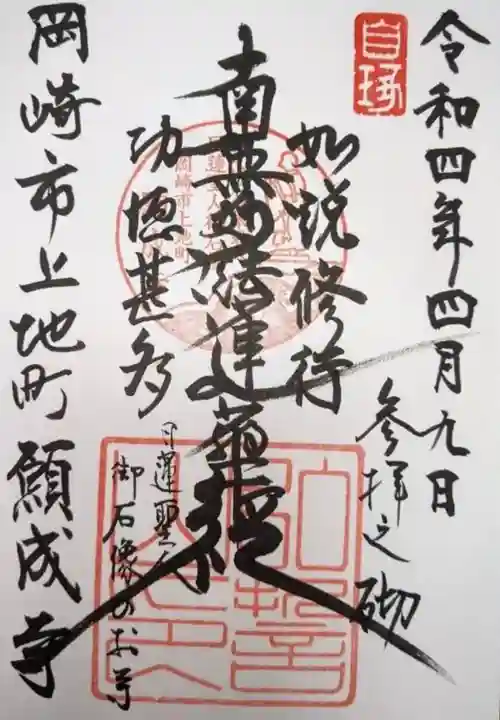 令和四年四月九日
参拝之砌
如説修行
南無妙法蓮華経
功徳甚多
日蓮聖人
御石像のお寺
岡崎市上地町 願成寺
岡崎市上地町